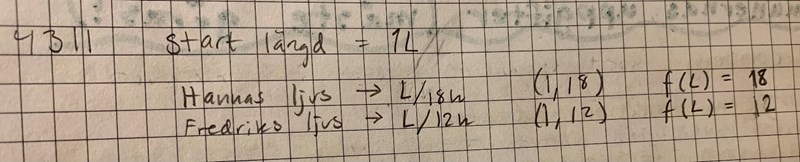 4311 Start längd = 1L
Hannas ljus → L/18h (1,18) f(L) = 18
Fredriks ljus → L/12h (1,12) f(L) = 12